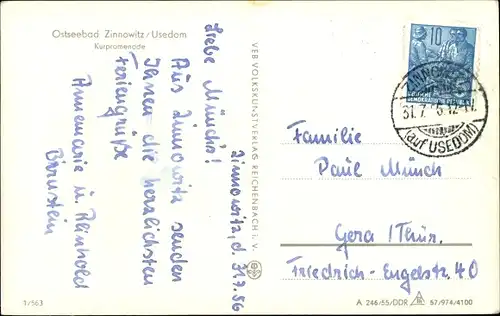 Ostseebad Zinnowitz / Usedom
Kurpromenade
Zinnowitz, d. 31.7.56
Liebe Münchs!
Aus Zinnowitz senden
Ihnen die herzlichsten
Feriengrüße
Annemarie u. Reinhold
Bernstein
VEB VOLKSKUNSTVERLAG REICHENBACH i. V.
10
31.7.
(auf USEDOM)
Familie
Paul Münch
Gera / Thür.
Friedrich-Engelstr. 40
1/563
A 246/55/DDR
57/974/4100